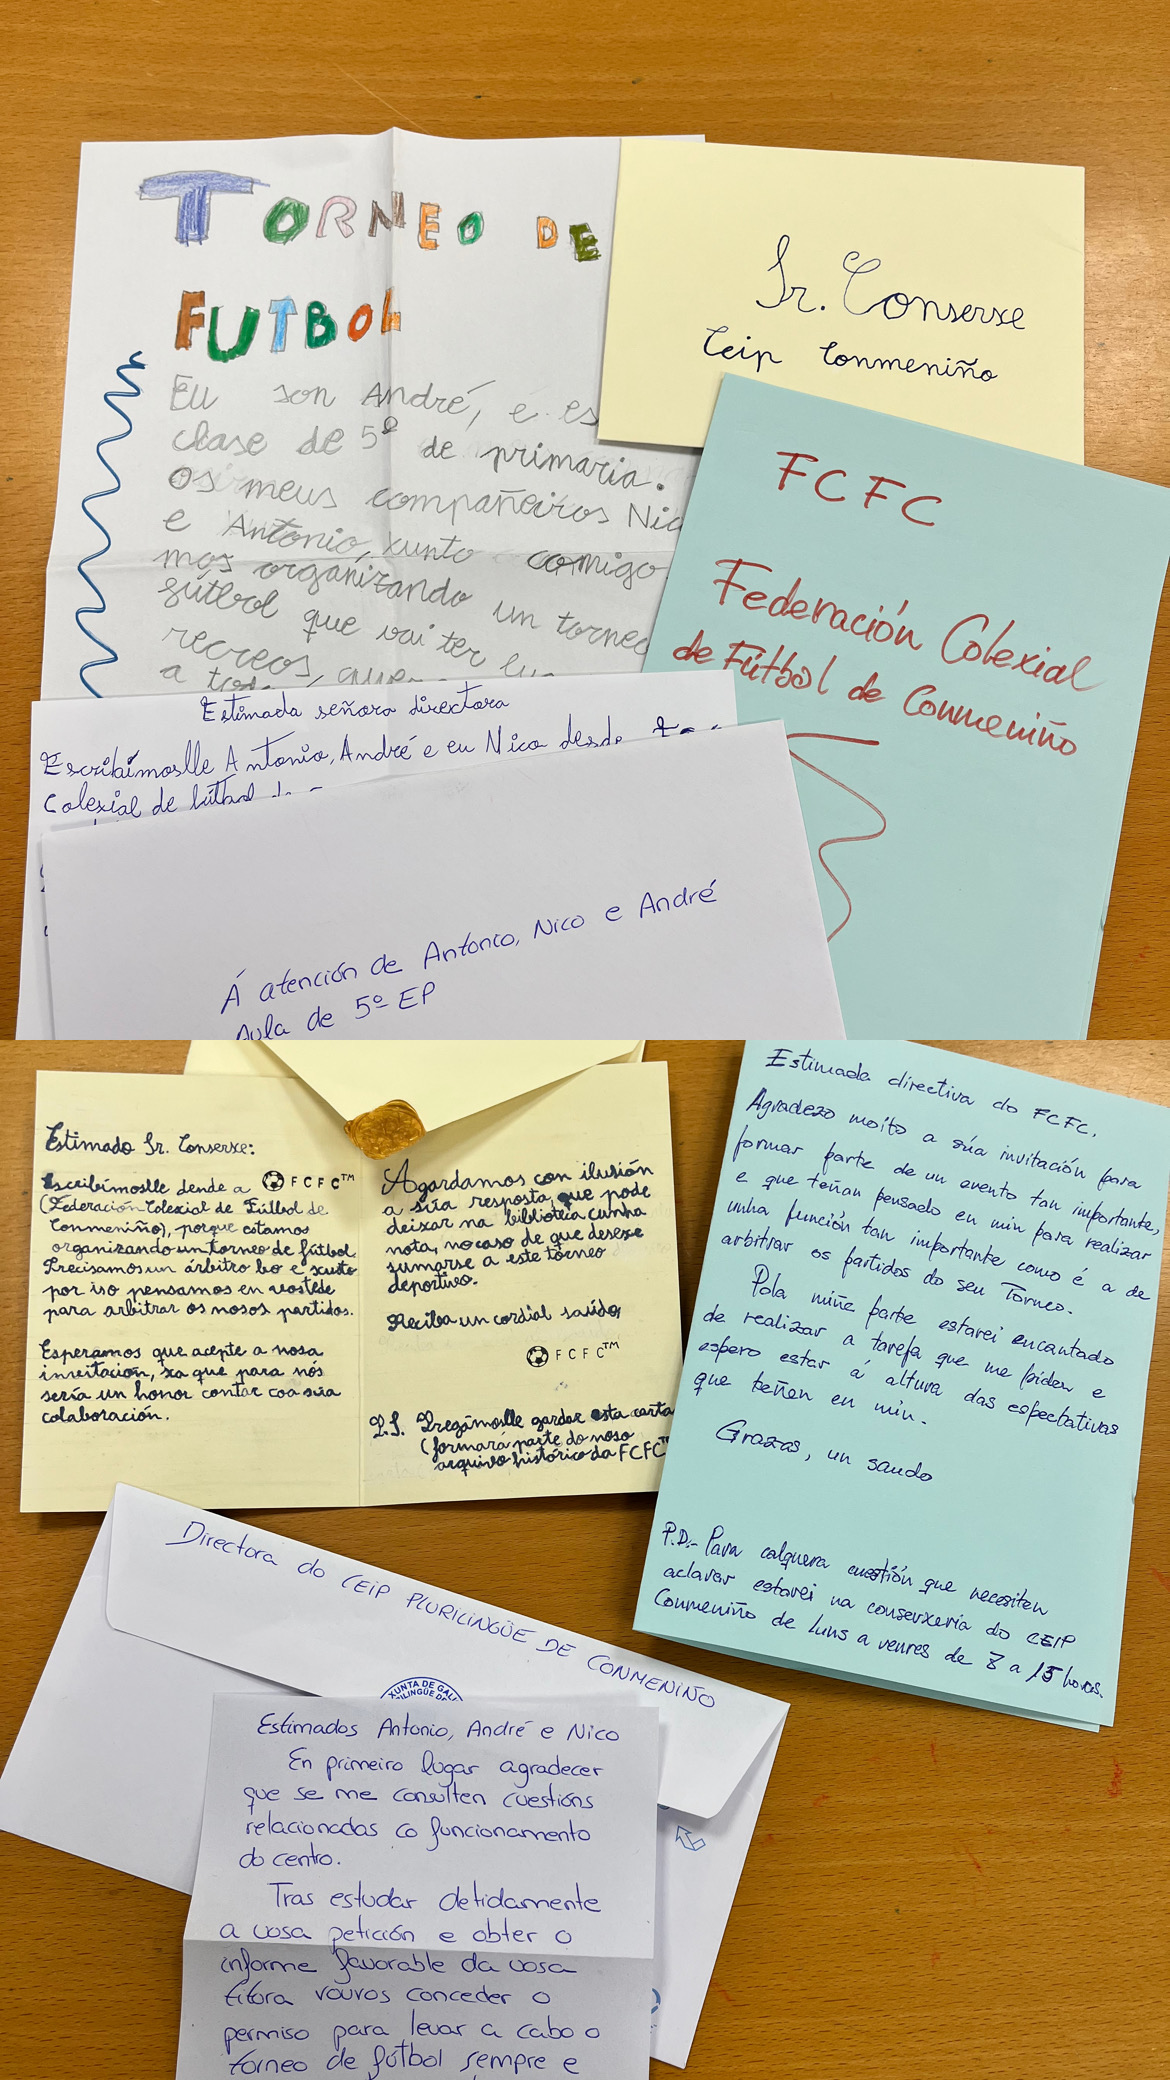 TORNEO DE
FUTBOL
Eu son André, e es
clase de 5º de primaria.
Os meus compañeiros Nic
e Antonio, xunto comigo
mos organizando un torneo
fútbol que vai ter lu
recreos,
a
Sr. Conserxe
Ceip Conmeniño
FCFC
Federación Colexial
de Fútbol de Conmeniño
Estimada señora directora
Escribímoslle Antonio, André e eu Nico desde
Colexial de fútbol
Á atención de Antonio, Nico e André
Aula de 5º EP
Estimado Sr. Conserxe:
Escribímoslle dende a FCFC™
(Federación Colexial de Fútbol de
Conmeniño), porque estamos
organizando un torneo de fútbol.
Precisamos un árbitro bo e xusto
por iso pensamos en vostede
para arbitrar os nosos partidos.
Esperamos que acepte a nosa
invitación, xa que para nós
sería un honor contar coa súa
colaboración.
Agardamos con ilusión
a súa resposta, que pode
deixar na biblioteca cunha
nota, no caso de que desexe
sumarse a este torneo
deportivo.
Reciba un cordial saúdo,
FCFC™
P.S. Pregámoslle gardar esta carta
(formará parte do noso
arquivo histórico da FCFC™
Estimada directiva do FCFC.
Agradezo moito a súa invitación para
formar parte de un evento tan importante,
e que teñan pensado en min para realizar
unha función tan importante como é a de
arbitrar os partidos do seu Torneo.
Pola miña parte estarei encantado
de realizar a tarefa que me piden e
espero estar á altura das espectativas
que teñen en min.
Grazas, un saudo
P.D.- Para calquera cuestión que necesiten
aclarar estarei na conserxeria do CEIP
Conmeniño de luns a venres de 8 a 15 horas.
Directora do CEIP PLURILINGÜE DE CONMENIÑO
XUNTA DE GALI
RILINGÜE DE
Estimados Antonio, André e Nico
En primeiro lugar agradecer
que se me consulten cuestións
relacionadas co funcionamento
do centro.
Tras estudar detidamente
a vosa petición e obter o
informe favorable da vosa
titora vouvos conceder o
permiso para levar a cabo o
torneo de fútbol sempre e